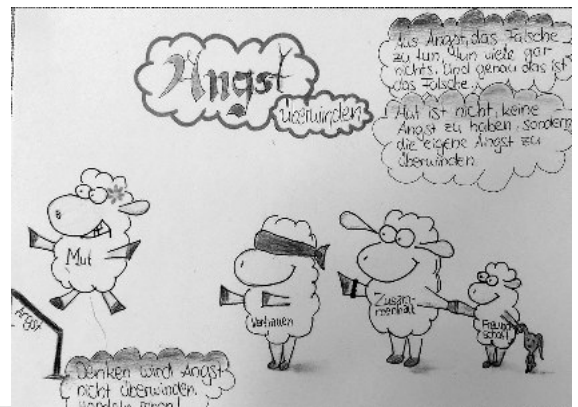 Angst
überwinden
Aus Angst, das Falsche
zu tun, tun viele gar
nichts. Und genau das ist
das Falsche...
Mut ist nicht, keine
Angst zu haben, sondern
die eigene Angst zu
überwinden
Mut
Vertrauen
Zusam-
menhalt
Freund
schaft
Angst
Denken wird Angst
nicht überwinden.
Handeln schon!